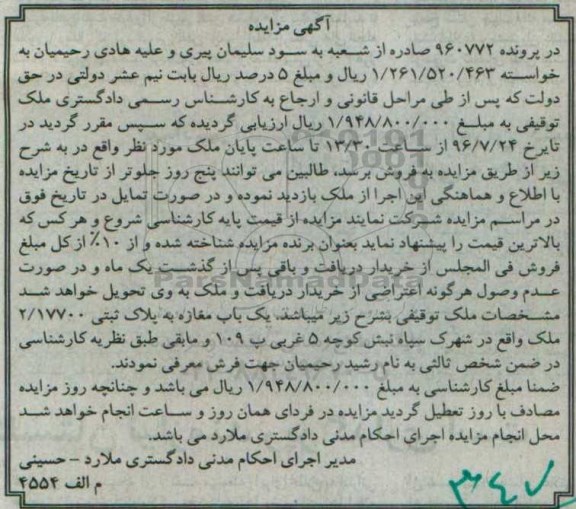 آگهی مزایده
در پرونده ۹۶۰۷۷۲ صادره از شعبه به سود سلیمان پیری و علیه هادی رحیمیان به
خواسته ۱/۲۶۱/۵۲۰/۴۶۳ ریال و مبلغ ۵ درصد ریال بابت نیم عشر دولتی در حق
دولت که پس از طی مراحل قانونی و ارجاع به کارشناس رسمی دادگستری ملک
توقیفی به مبلغ ۱/۹۴۸/۸۰۰/۰۰۰ ریال ارزیابی گردیده که سپس مقرر گردید در
تایرخ ۹۶/۷/۲۴ از ساعت ۱۳/۳۰ تا ساعت پایان ملک مورد نظر واقع در به شرح
زیر از طریق مزایده به فروش برسد. طالبین می توانند پنج روز جلوتر از تاریخ مزایده
با اطلاع و هماهنگی این اجرا از ملک بازدید نموده و در صورت تمایل در تاریخ فوق
در مراسم مزایده شرکت نمایند مزایده از قیمت پایه کارشناسی شروع و هر کس که
بالاترین قیمت را پیشنهاد نماید بعنوان برنده مزایده شناخته شده و از ۱۰٪ از کل مبلغ
فروش فی المجلس از خریدار دریافت و باقی پس از گذشت یک ماه و در صورت
عدم وصول هرگونه اعتراضی از خریدار دریافت و ملک به وی تحویل خواهد شد
مشخصات ملک توقیفی بشرح زیر میباشد. یک باب مغازه به پلاک ثبتی ۲/۱۷۷۰۰
ملک واقع در شهرک سپاه نبش کوچه ۵ غربی پ ۱۰۹ و مابقی طبق نظریه کارشناسی
در ضمن شخص ثالثی به نام رشید رحیمیان جهت فرش معرفی نمودند.
ضمنا مبلغ کارشناسی به مبلغ ۱/۹۴۸/۸۰۰/۰۰۰ ریال می باشد و چنانچه روز مزایده
مصادف با روز تعطیل گردید مزایده در فردای همان روز و ساعت انجام خواهد شد
محل انجام مزایده اجرای احکام مدنی دادگستری ملارد می باشد.
مدیر اجرای احکام مدنی دادگستری ملارد - حسینی
م الف ۴۵۵۴
ParsNamadData